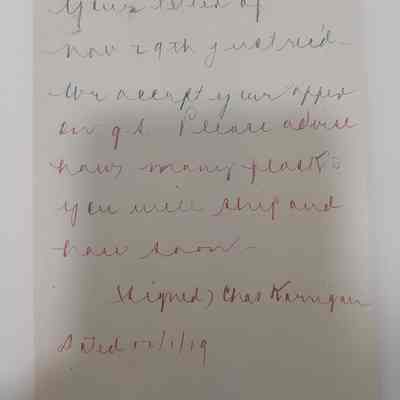 Your letter of
Nov 29th just rec'd -
We accept your offer
on qt. Please advise
how many
you will ship and
how soon -
(Signed) Chas Karrigan
Dated 12/1/19